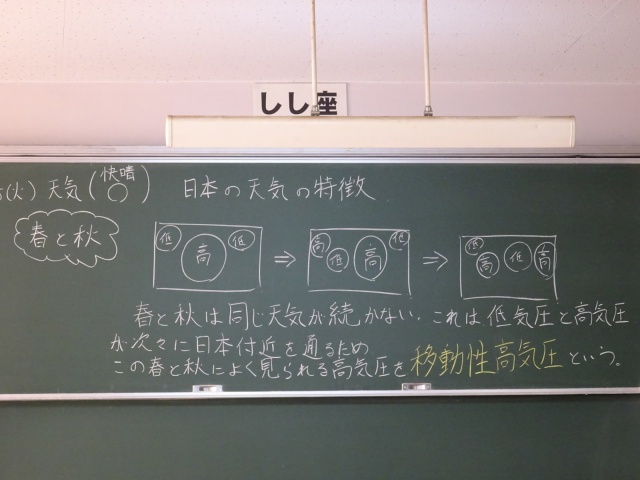 しし座
(火) 天気(快晴○) 日本の天気の特徴
春と秋
低 高 低 ⇒ 高 低 高 低 ⇒ 低 高 低 高
春と秋は同じ天気が続かない。これは低気圧と高気圧
が次々に日本付近を通るため
この春と秋によく見られる高気圧を移動性高気圧という。